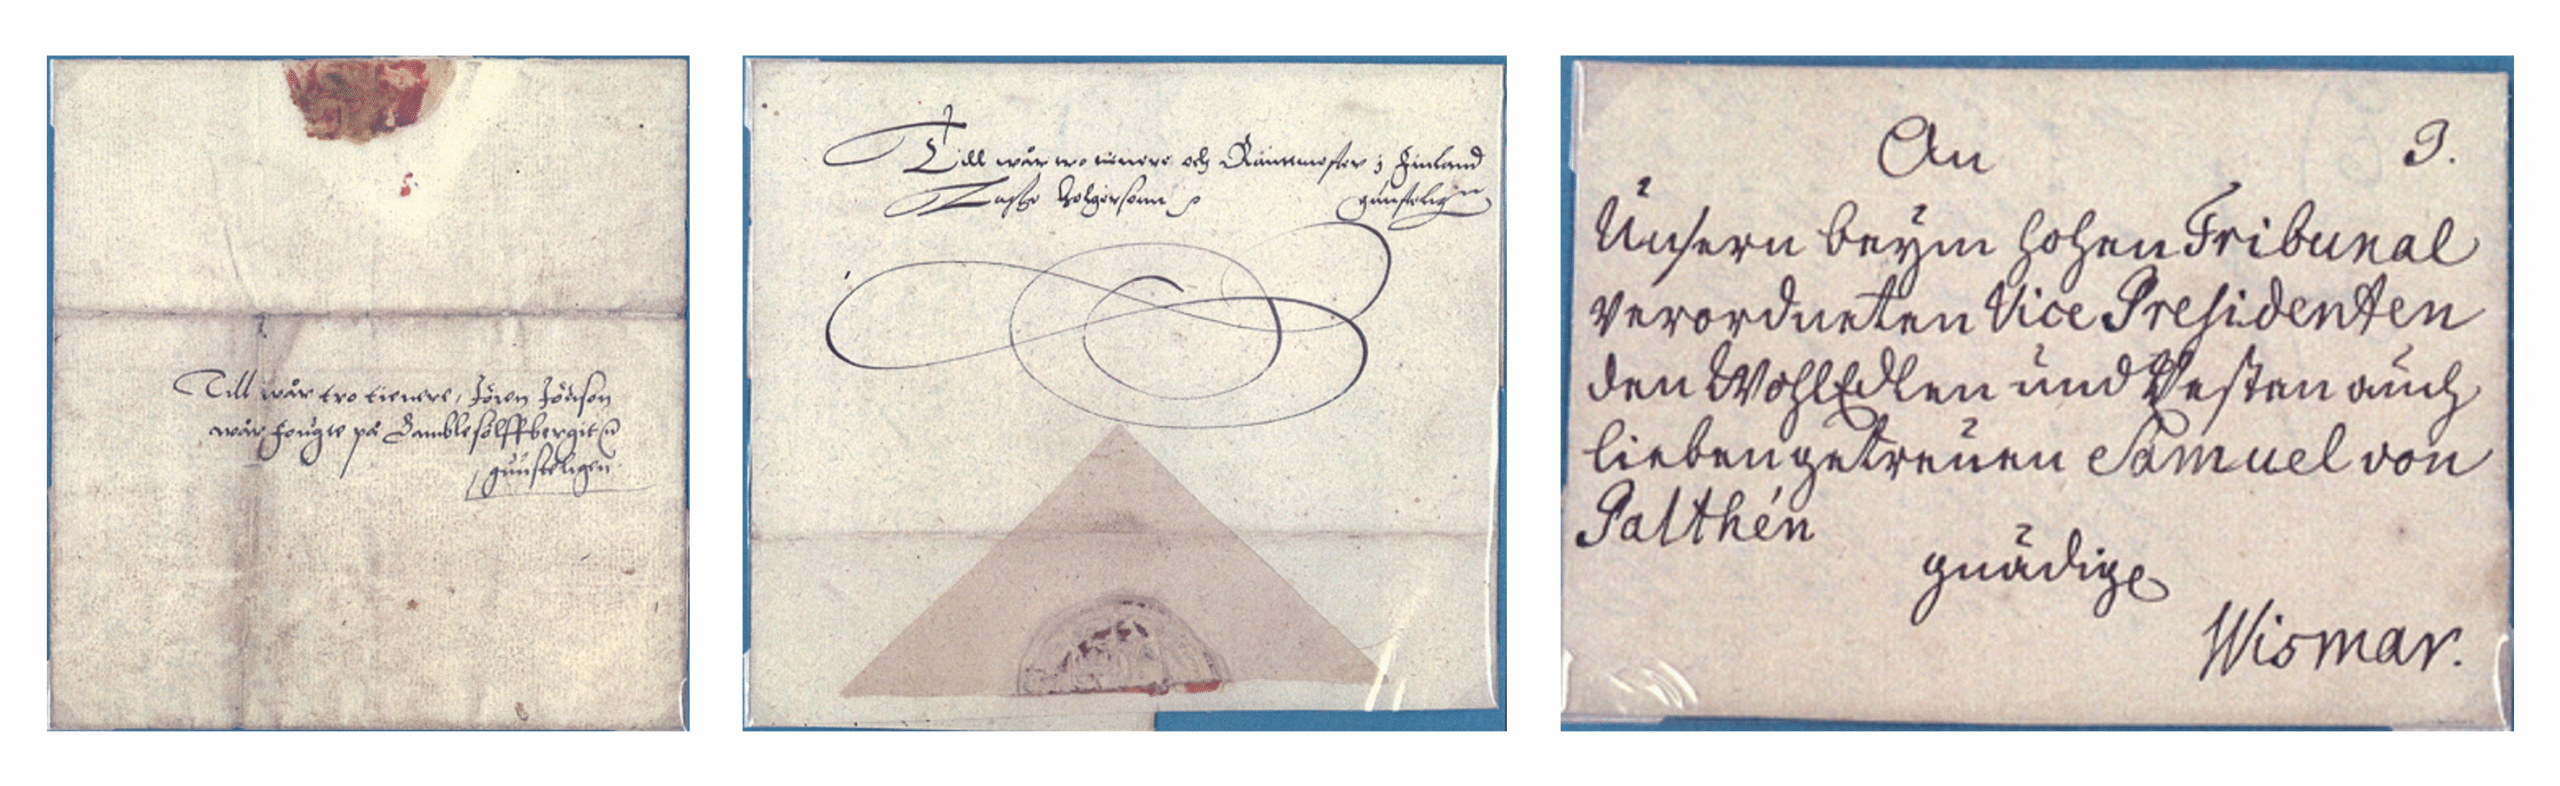 Till wår tro tienere, Jören Jönson
wår fougte på Gamblesölffbergit
gunsteligen
Till wår tro tienere och Räntmester i Finland
gunsteligen
An
3.
Unsern beÿm hohen Tribunal
verordneten Vice Presidenten
den WohlEdlen und Vesten auch
lieben getreuen Samuel von
Palthén
gnädige
Wismar.